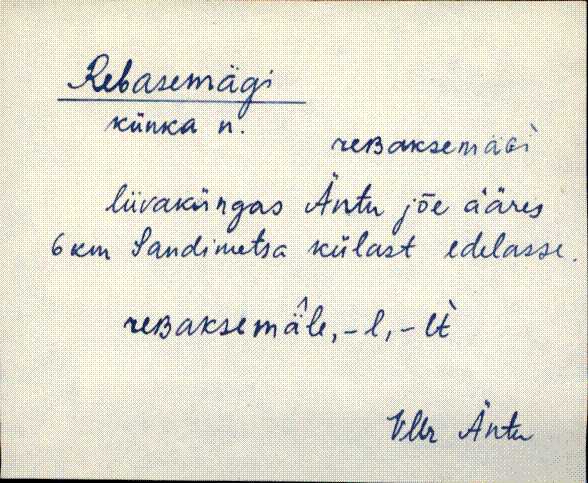 Rebasemägi
künka n.
reʙaksemäɢì
liivaküngas Äntu jõe ääres
6 km Sandimetsa külast edelasse.
reʙaksemä̂le, -l, -lt̀
VMr Äntu